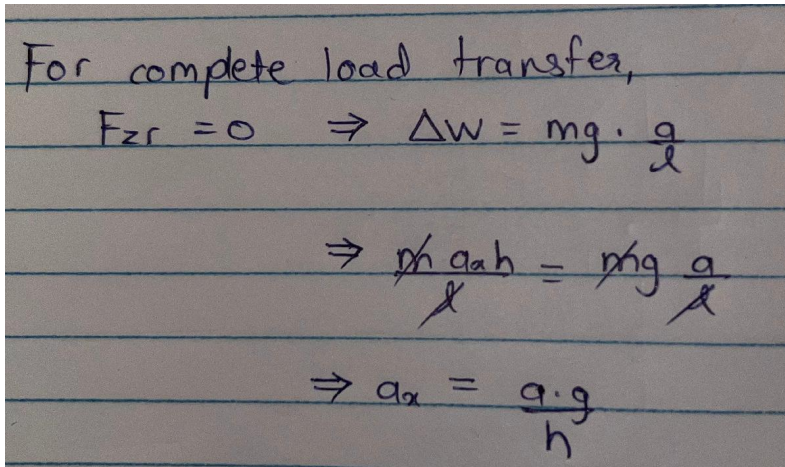 For complete load transfer,
Fzr = 0 ⇒ ΔW = mg · a/l
⇒ m aₓh/l = mg a/l
⇒ aₓ = a·g/h